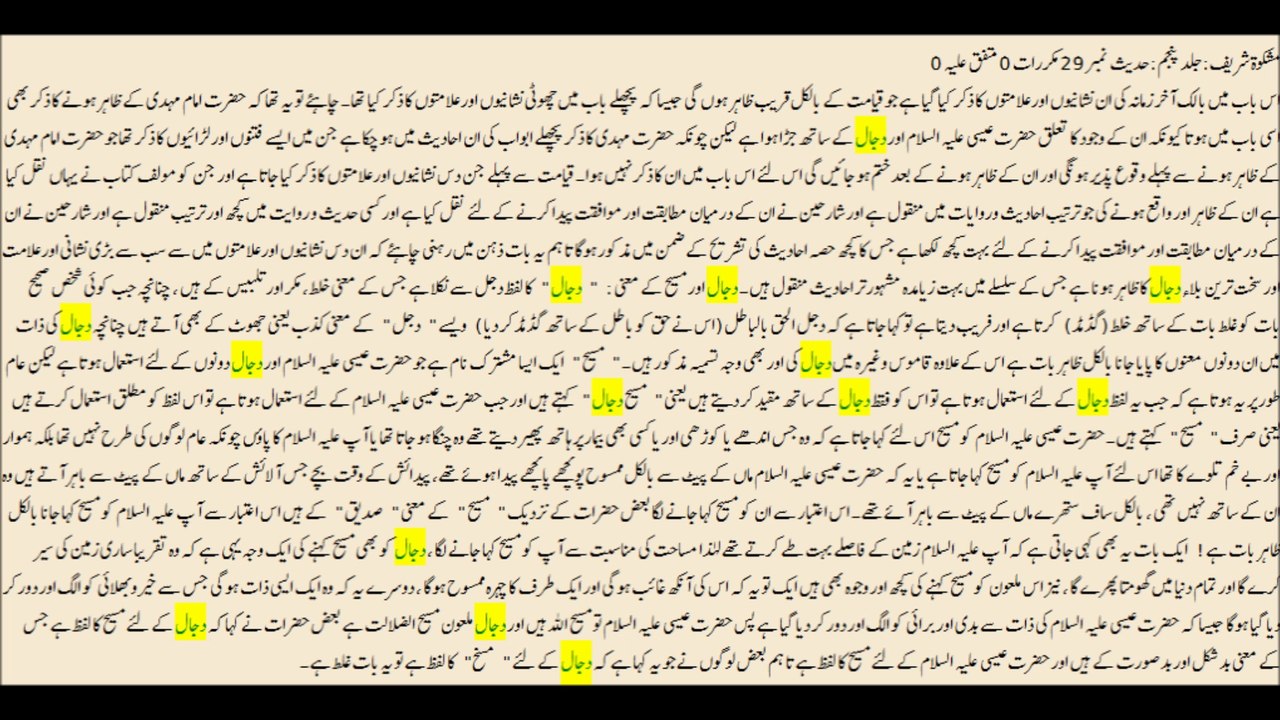 مشکوۃ شریف: جلد پنجم: حدیث نمبر 29 مکررات 0 متفق علیہ 0
اس باب میں بالک آخر زمانہ کی ان نشانیوں اور علامتوں کا ذکر کیا گیا ہے جو قیامت کے بالکل قریب ظاہر ہوں گی جیسا کہ پچھلے باب میں چھوٹی نشانیوں اور علامتوں کا ذکر کیا تھا۔ چاہئے تو یہ تھا کہ حضرت امام مہدی کے ظاہر ہونے کا ذکر بھی
اسی باب میں ہوتا کیونکہ ان کے وجود کا تعلق حضرت عیسی علیہ السلام اور دجال کے ساتھ جڑا ہوا ہے لیکن چونکہ حضرت مہدی کا ذکر پچھلے ابواب کی ان احادیث میں ہو چکا ہے جن میں ایسے فتنوں اور لڑائیوں کا ذکر تھا جو حضرت امام مہدی
کے ظاہر ہونے سے پہلے وقوع پذیر ہونگی اور ان کے ظاہر ہونے کے بعد ختم ہو جائیں گی اس لئے اس باب میں ان کا ذکر نہیں ہوا۔ قیامت سے پہلے جن دس نشانیوں اور علامتوں کا ذکر کیا جاتا ہے اور جن کو مولف کتاب نے یہاں نقل کیا
ہے ان کے ظاہر اور واقع ہونے کی جو ترتیب احادیث و روایات میں منقول ہے اور شارحین نے ان کے درمیان مطابقت اور موافقت پیدا کرنے کے لئے نقل کیا ہے اور کسی حدیث و روایت میں کچھ اور ترتیب منقول ہے اور شارحین نے ان
کے درمیان مطابقت اور موافقت پیدا کرنے کے لئے بہت کچھ لکھا ہے جس کا کچھ حصہ احادیث کی تشریح کے ضمن میں مذکور ہوگا تاہم یہ بات ذہن میں رہنی چاہئے کہ ان دس نشانیوں اور علامتوں میں سے سب سے بڑی نشانی اور علامت
اور سخت ترین بلاء دجال کا ظاہر ہونا ہے جس کے سلسلے میں بہت زیامدہ مشہور تر احادیث منقول ہیں۔ دجال اور مسیح کے معنی : " دجال " کا لفظ دجل سے نکلا ہے جس کے معنی خلط، مکر اور تلبیس کے ہیں ، چنانچہ جب کوئی شخص صحیح
بات کو غلط بات کے ساتھ خلط (گڈمڈ) کرتا ہے اور فریب دیتا ہے تو کہا جاتا ہے کہ دجل الحق بالباطل (اس نے حق کو باطل کے ساتھ گڈمڈ کر دیا) ویسے " دجل " کے معنی کذب یعنی جھوٹ کے بھی آتے ہیں چنانچہ دجال کی ذات
میں ان دونوں معنوں کا پایا جانا بالکل ظاہر بات ہے اس کے علاوہ قاموس وغیرہ میں دجال کی اور بھی وجہ تسمیہ مذکور ہیں۔ " مسیح " ایک ایسا مشترک نام ہے جو حضرت عیسی علیہ السلام اور دجال دونوں کے لئے استعمال ہوتا ہے لیکن عام
طور پر یہ ہوتا ہے کہ جب یہ لفظ دجال کے لئے استعمال ہوتا ہے تو اس کو فقط دجال کے ساتھ مقید کر دیتے ہیں یعنی " مسیح دجال " کہتے ہیں اور جب حضرت عیسی علیہ السلام کے لئے استعمال ہوتا ہے تو اس لفظ کو مطلق استعمال کرتے ہیں
یعنی صرف " مسیح " کہتے ہیں۔ حضرت عیسی علیہ السلام کو مسیح اس لئے کہا جاتا ہے کہ وہ جس اندھے یا کوڑھی اور یا کسی بھی بیمار پر ہاتھ پھیر دیتے تھے وہ چنگا ہو جاتا تھا یا آپ علیہ السلام کا پاؤں چونکہ عام لوگوں کی طرح نہیں تھا بلکہ ہموار
اور بے خم تلوے کا تھا اس لئے آپ علیہ السلام کو مسیح کہا جاتا ہے یا یہ کہ حضرت عیسی علیہ السلام ماں کے پیٹ سے بالکل ممسوح پونچھے پانچھے پیدا ہوئے تھے، پیدائش کے وقت بچے جس آلائش کے ساتھ ماں کے پیٹ سے باہر آتے ہیں وہ
ان کے ساتھ نہیں تھی ، بالکل ساف ستھرے ماں کے پیٹ سے باہر آئے تھے۔ اس اعتبار سے ان کو مسیح کہا جانے لگا بعض حضرات کے نزدیک " مسیح " کے معنی " صدیق " کے ہیں اس اعتبار سے آپ علیہ السلام کو مسیح کہا جانا بالکل
ظاہر بات ہے ! ایک بات یہ بھی کہی جاتی ہے کہ آپ علیہ السلام زمین کے فاصلے بہت طے کرتے تھے لہٰذا مساحت کی مناسبت سے آپ کو مسیح کہا جانے لگا، دجال کو بھی مسیح کہنے کی ایک وجہ یہی ہے کہ وہ تقریبا ساری زمین کی سیر
کرے گا اور تمام دنیا میں گھومتا پھرے گا ، نیز اس ملعون کو مسیح کہنے کی کچھ اور وجوہ بھی ہیں ایک تو یہ کہ اس کی آنکھ غائب ہوگی اور ایک طرف کا چہرہ ممسوح ہوگا، دوسرے یہ کہ وہ ایک ایسی ذات ہوگی جس سے خیر و بھلائی کو الگ اور دور کر
دیا گیا ہوگا جیسا کہ حضرت عیسی علیہ السلام کی ذات سے بدی اور برائی کو الگ اور دور کر دیا گیا ہے پس حضرت عیسی علیہ السلام تو مسیح اللہ ہیں اور دجال ملعون مسیح الضلالت ہے بعض حضرات نے کہا کہ دجال کے لئے مسیح کا لفظ ہے جس
کے معنی بد شکل اور بد صورت کے ہیں اور حضرت عیسی علیہ السلام کے لئے مسیح کا لفظ ہے تاہم بعض لوگوں نے جو یہ کہا ہے کہ دجال کے لئے " مسخ " کا لفظ ہے تو یہ بات غلط ہے۔